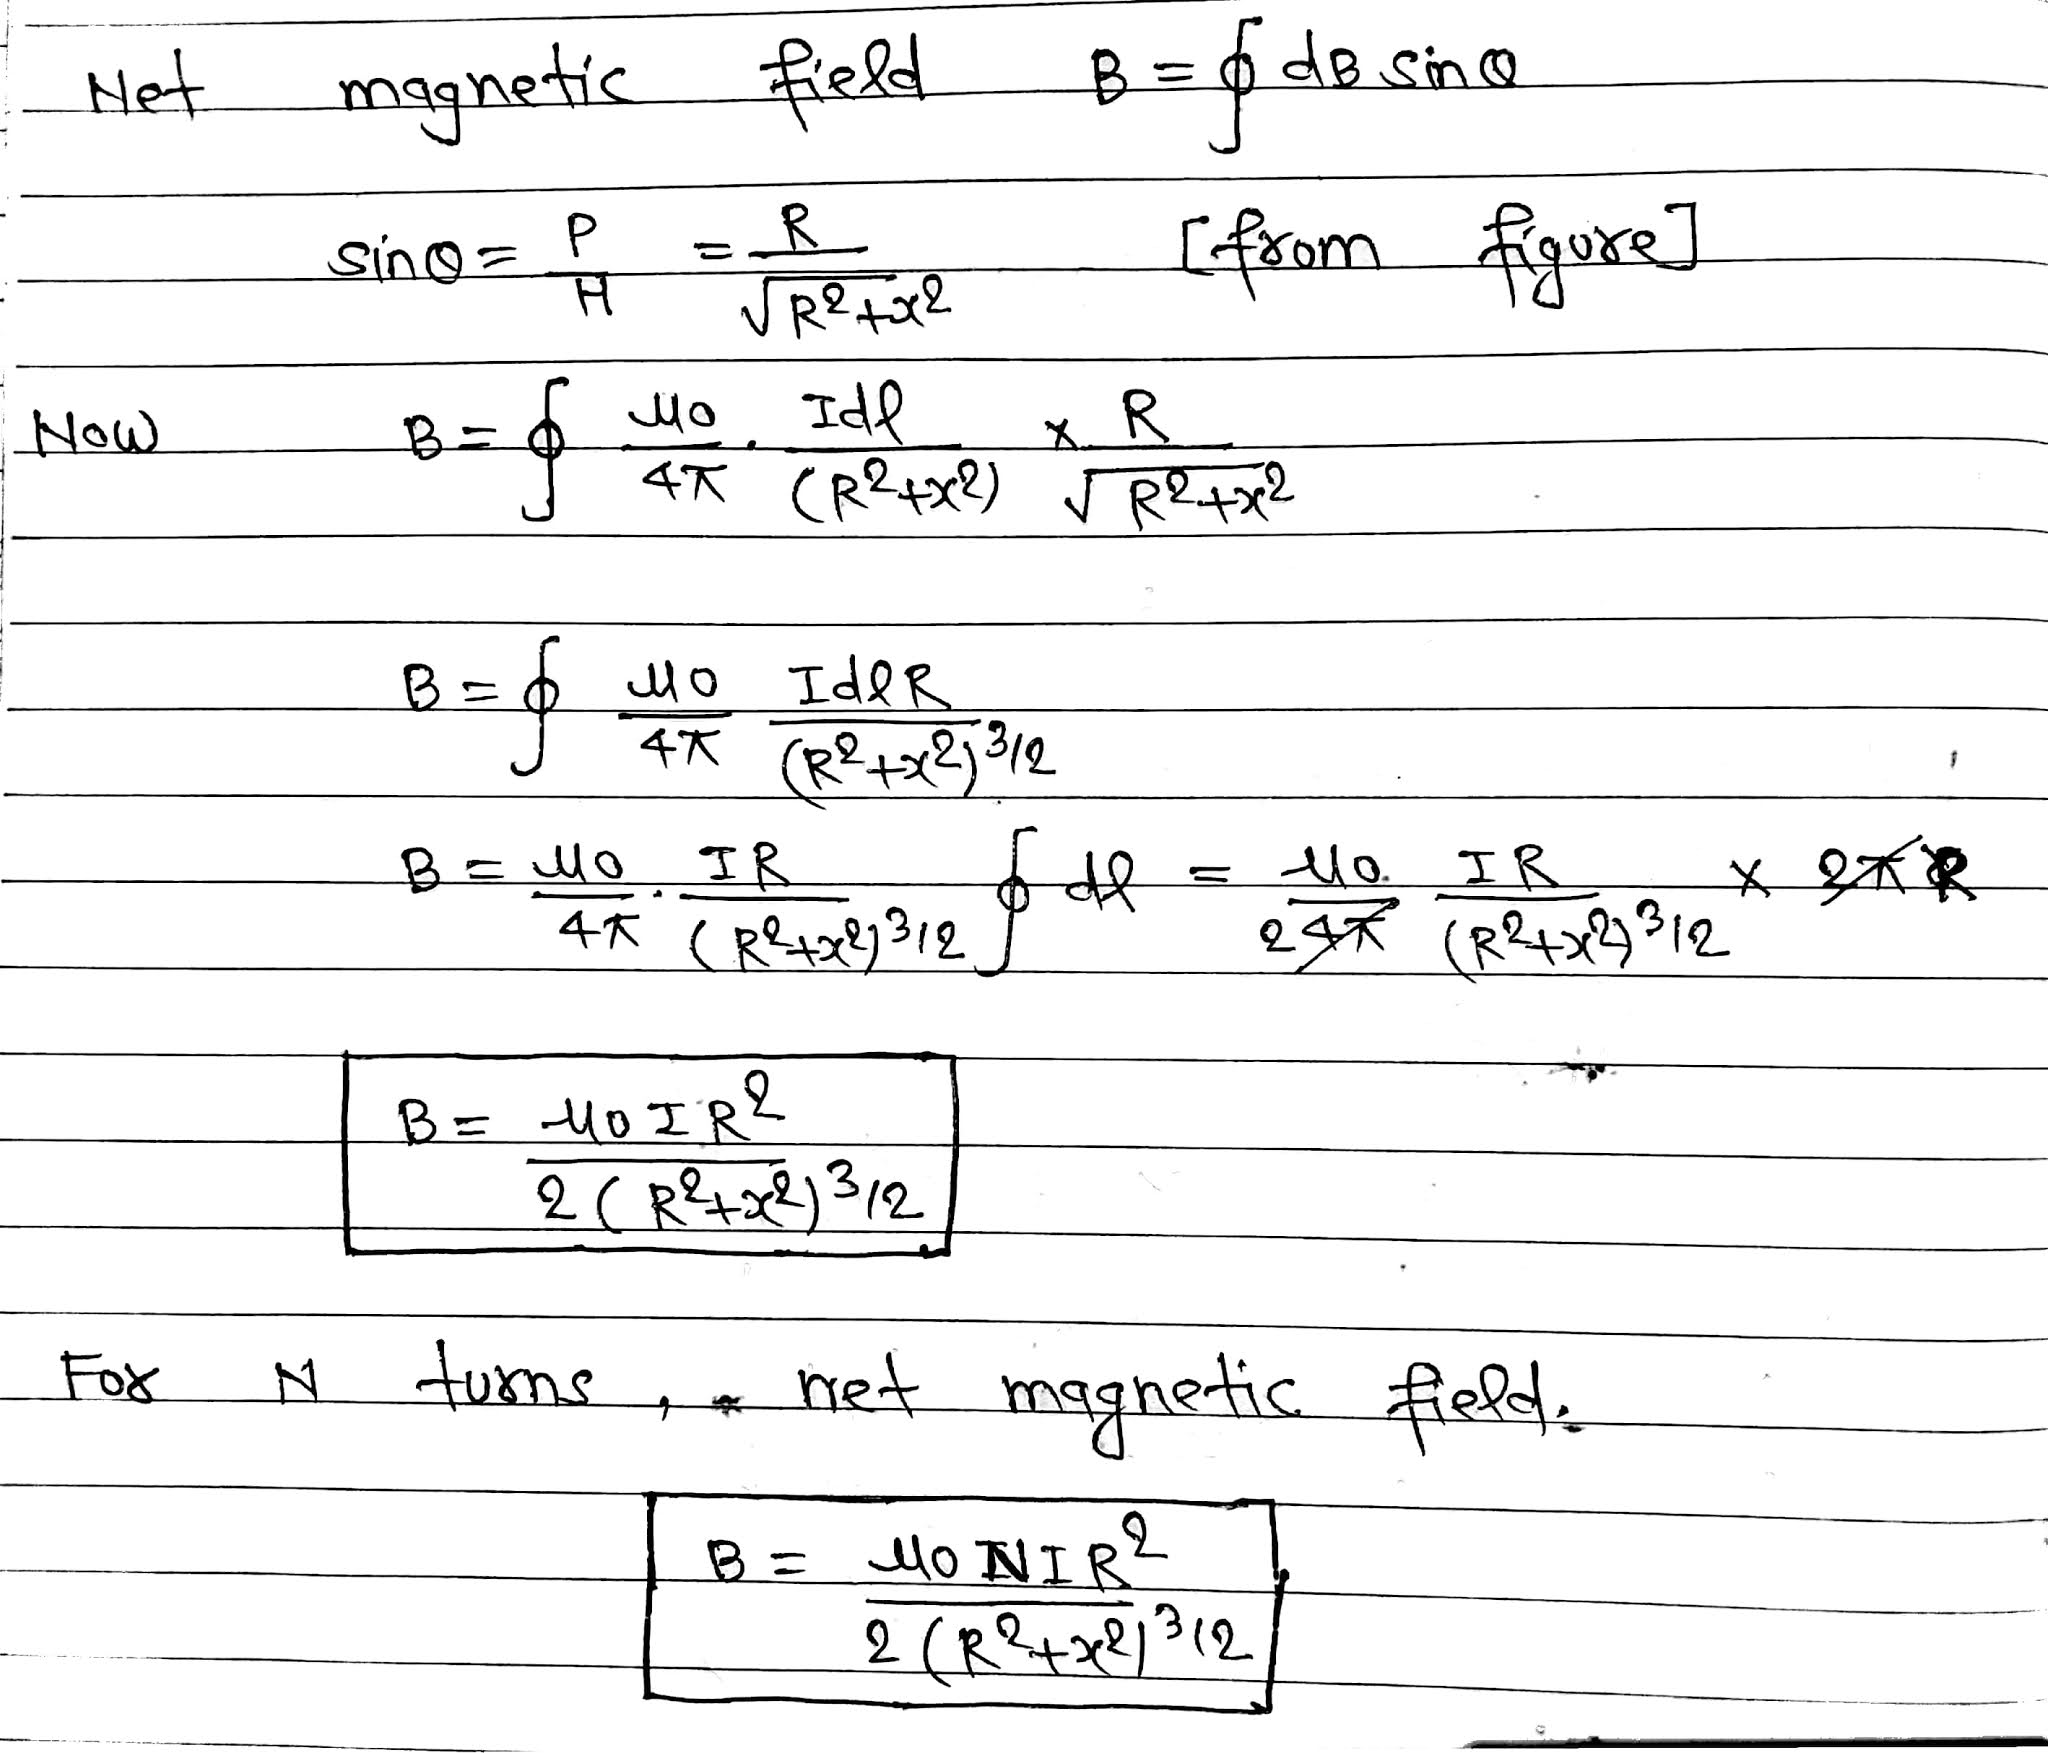 Net magnetic field B = ∮ dB sinθ
sinθ = P/H = R/√(R²+x²) [from figure]
Now B = ∮ μ0/4π · Idl/(R²+x²) × R/√(R²+x²)
B = ∮ μ0/4π IdlR/(R²+x²)^3/2
B = μ0/4π · IR/(R²+x²)^3/2 ∮ dl = μ0/2 4π IR/(R²+x²)^3/2 × 2πR
B = μ0IR²/2(R²+x²)^3/2
For N turns, net magnetic field.
B = μ0NIR²/2(R²+x²)^3/2